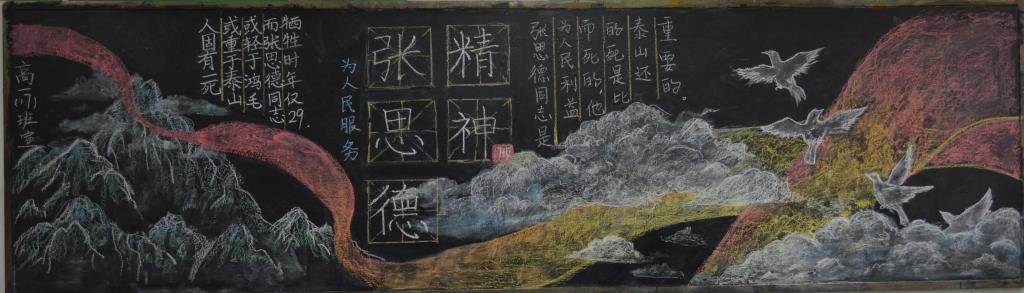 人固有一死
或重于泰山
或轻于鸿毛
而张思德同志
牺牲时年仅29.
为人民服务
张思德
精神
张思德同志是
为人民利益
而死的,他
的死是比
泰山还
重要的。